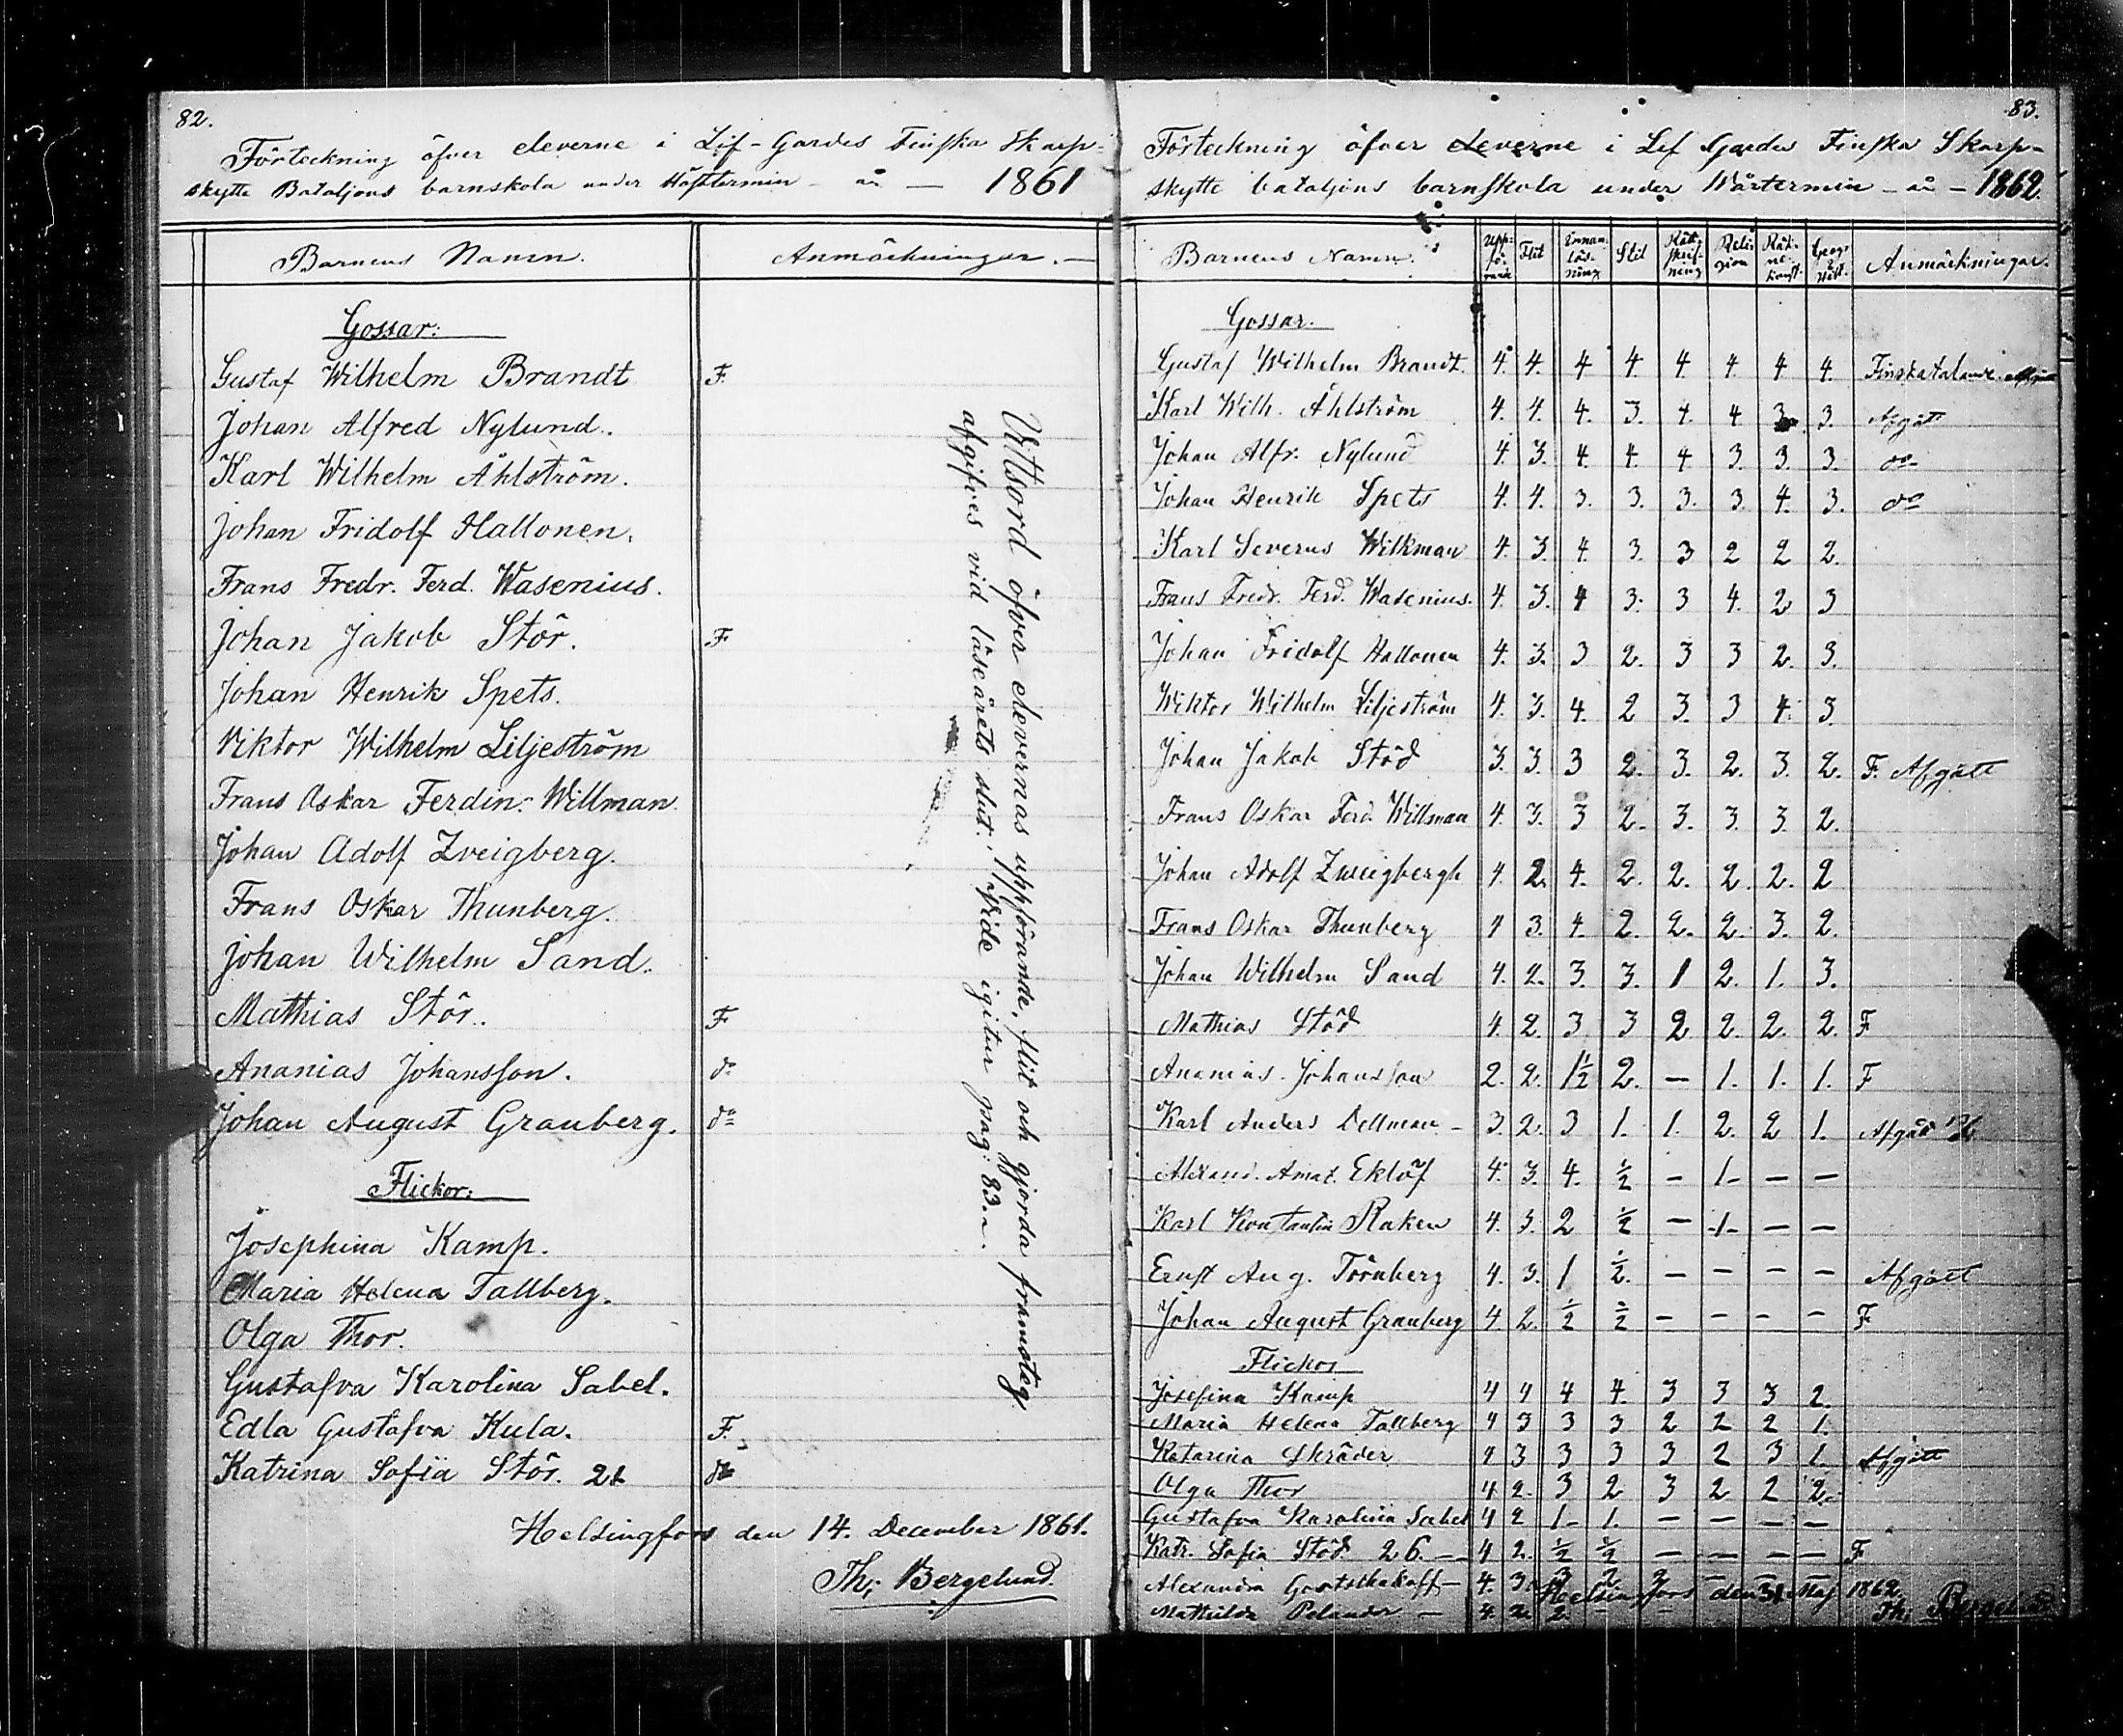 82.
Förteckning öfver eleverne i Lif-Gardes Finska Skarp-
skytte Bataljons barnskola under Hösttermin - år - 1861
Barnens Namn. Anmärkningar.
Gossar:
Gustaf Wilhelm Brandt F.
Johan Alfred Nylund.
Karl Wilhelm Åhlström.
Johan Fridolf Hallonen.
Frans Fredr. Ferd. Wasenius.
Johan Jakob Stör. F
Johan Henrik Spets.
Viktor Wilhelm Liljeström
Frans Oskar Ferdin: Willman.
Johan Adolf Zveigberg.
Frans Oskar Thunberg.
Johan Wilhelm Sand.
Mathias Stör. F
Ananias Johansson. do
Johan August Granberg. do
Flickor:
Josephina Kamp.
Maria Helena Tallberg.
Olga Thor.
Gustafva Karolina Sabel.
Edla Gustafva Kula. F.
Katrina Sofia Stör. 21 do
Vittsord öfver elevernas uppförande, flit och gjorda framsteg
afgifves vid läseårets slut. Vide igitur pag: 83.
Helsingfors den 14. December 1861.
Th: Bergelund.
83.
Förteckning öfver Eleverne i Lif Gardes Finska Skarp-
skytte bataljons barnskola under Wårtermin - år - 1862.
Barnens Namn. Upp-fö-rande Flit Innan-läs-ning Stil Rätt-skrif-ning Reli-gion Räk-ne-konst. Geogr. & Hist. Anmärkningar.
Gossar.
Gustaf Wilhelm Brandt. 4. 4. 4 4. 4. 4. 4 4. Finska talande.
Karl Wilh. Åhlström 4. 4. 4. 3. 4. 4 3. 3. Afgått
Johan Alfr. Nylund 4. 3. 4. 4. 4 3. 3. 3. do
Johan Henrik Spets 4. 4. 3. 3. 3. 3 4. 3. do
Karl Severus Wilkman 4. 3. 4. 3. 3 2 2 2.
Frans Fredr. Ferd. Wasenius. 4. 3. 4 3. 3 4. 2 3
Johan Fridolf Hallonen 4. 3. 3 2. 3 3 2. 3.
Wiktor Wilhelm Liljeström 4. 3. 4. 2 3. 3 4. 3.
Johan Jakob Stöd 3. 3. 3 2. 3. 2. 3. 2. F. Afgått
Frans Oskar Ferd. Willman 4. 3. 3 2. 3. 3. 3. 2.
Johan Adolf Zweigbergh 4. 2. 4. 2. 2. 2. 2. 2
Frans Oskar Thunberg 4 3. 4. 2. 2. 2. 3. 2.
Johan Wilhelm Sand 4. 2. 3. 3. 1 2. 1. 3.
Mathias Stöd 4. 2. 3 3 2 2. 2. 2. F
Ananias Johansson 2. 2. 1½ 2. — 1. 1. 1. F
Karl Anders Dellman - 3. 2. 3 1. 1. 2. 2 1. Afgått
Alexand. Amat. Eklöf 4. 3. 4. ½ — 1- — —
Karl Konstantin Raken 4. 3. 2 ½ — -1- — —
Ernst Aug. Törnberg 4. 3. 1 ½. — — — — Afgått
Johan August Granberg 4. 2. ½ ½ — — — — F
Flickor
Josefina Kamp 4 4 4 4. 3 3 3 2.
Maria Helena Tallberg 4 3 3 3 2 2 2 1.
Katarina Skräder 4 3 3 3 3 2 3 1. Afgått
Olga Thor 4 2. 3 2 3 2 2 2.
Gustafva Karolina Sabel 4 2 1- 1. — — — —
Katr. Sofia Stöd 26. — 4 2. ½ ½ — — — — F
Alexandra — 4. 3. 3 2. 2 — — —
Mathilda Polander — 4. 2. 2. - -
Helsingfors den 31 Maj 1862.
Th: